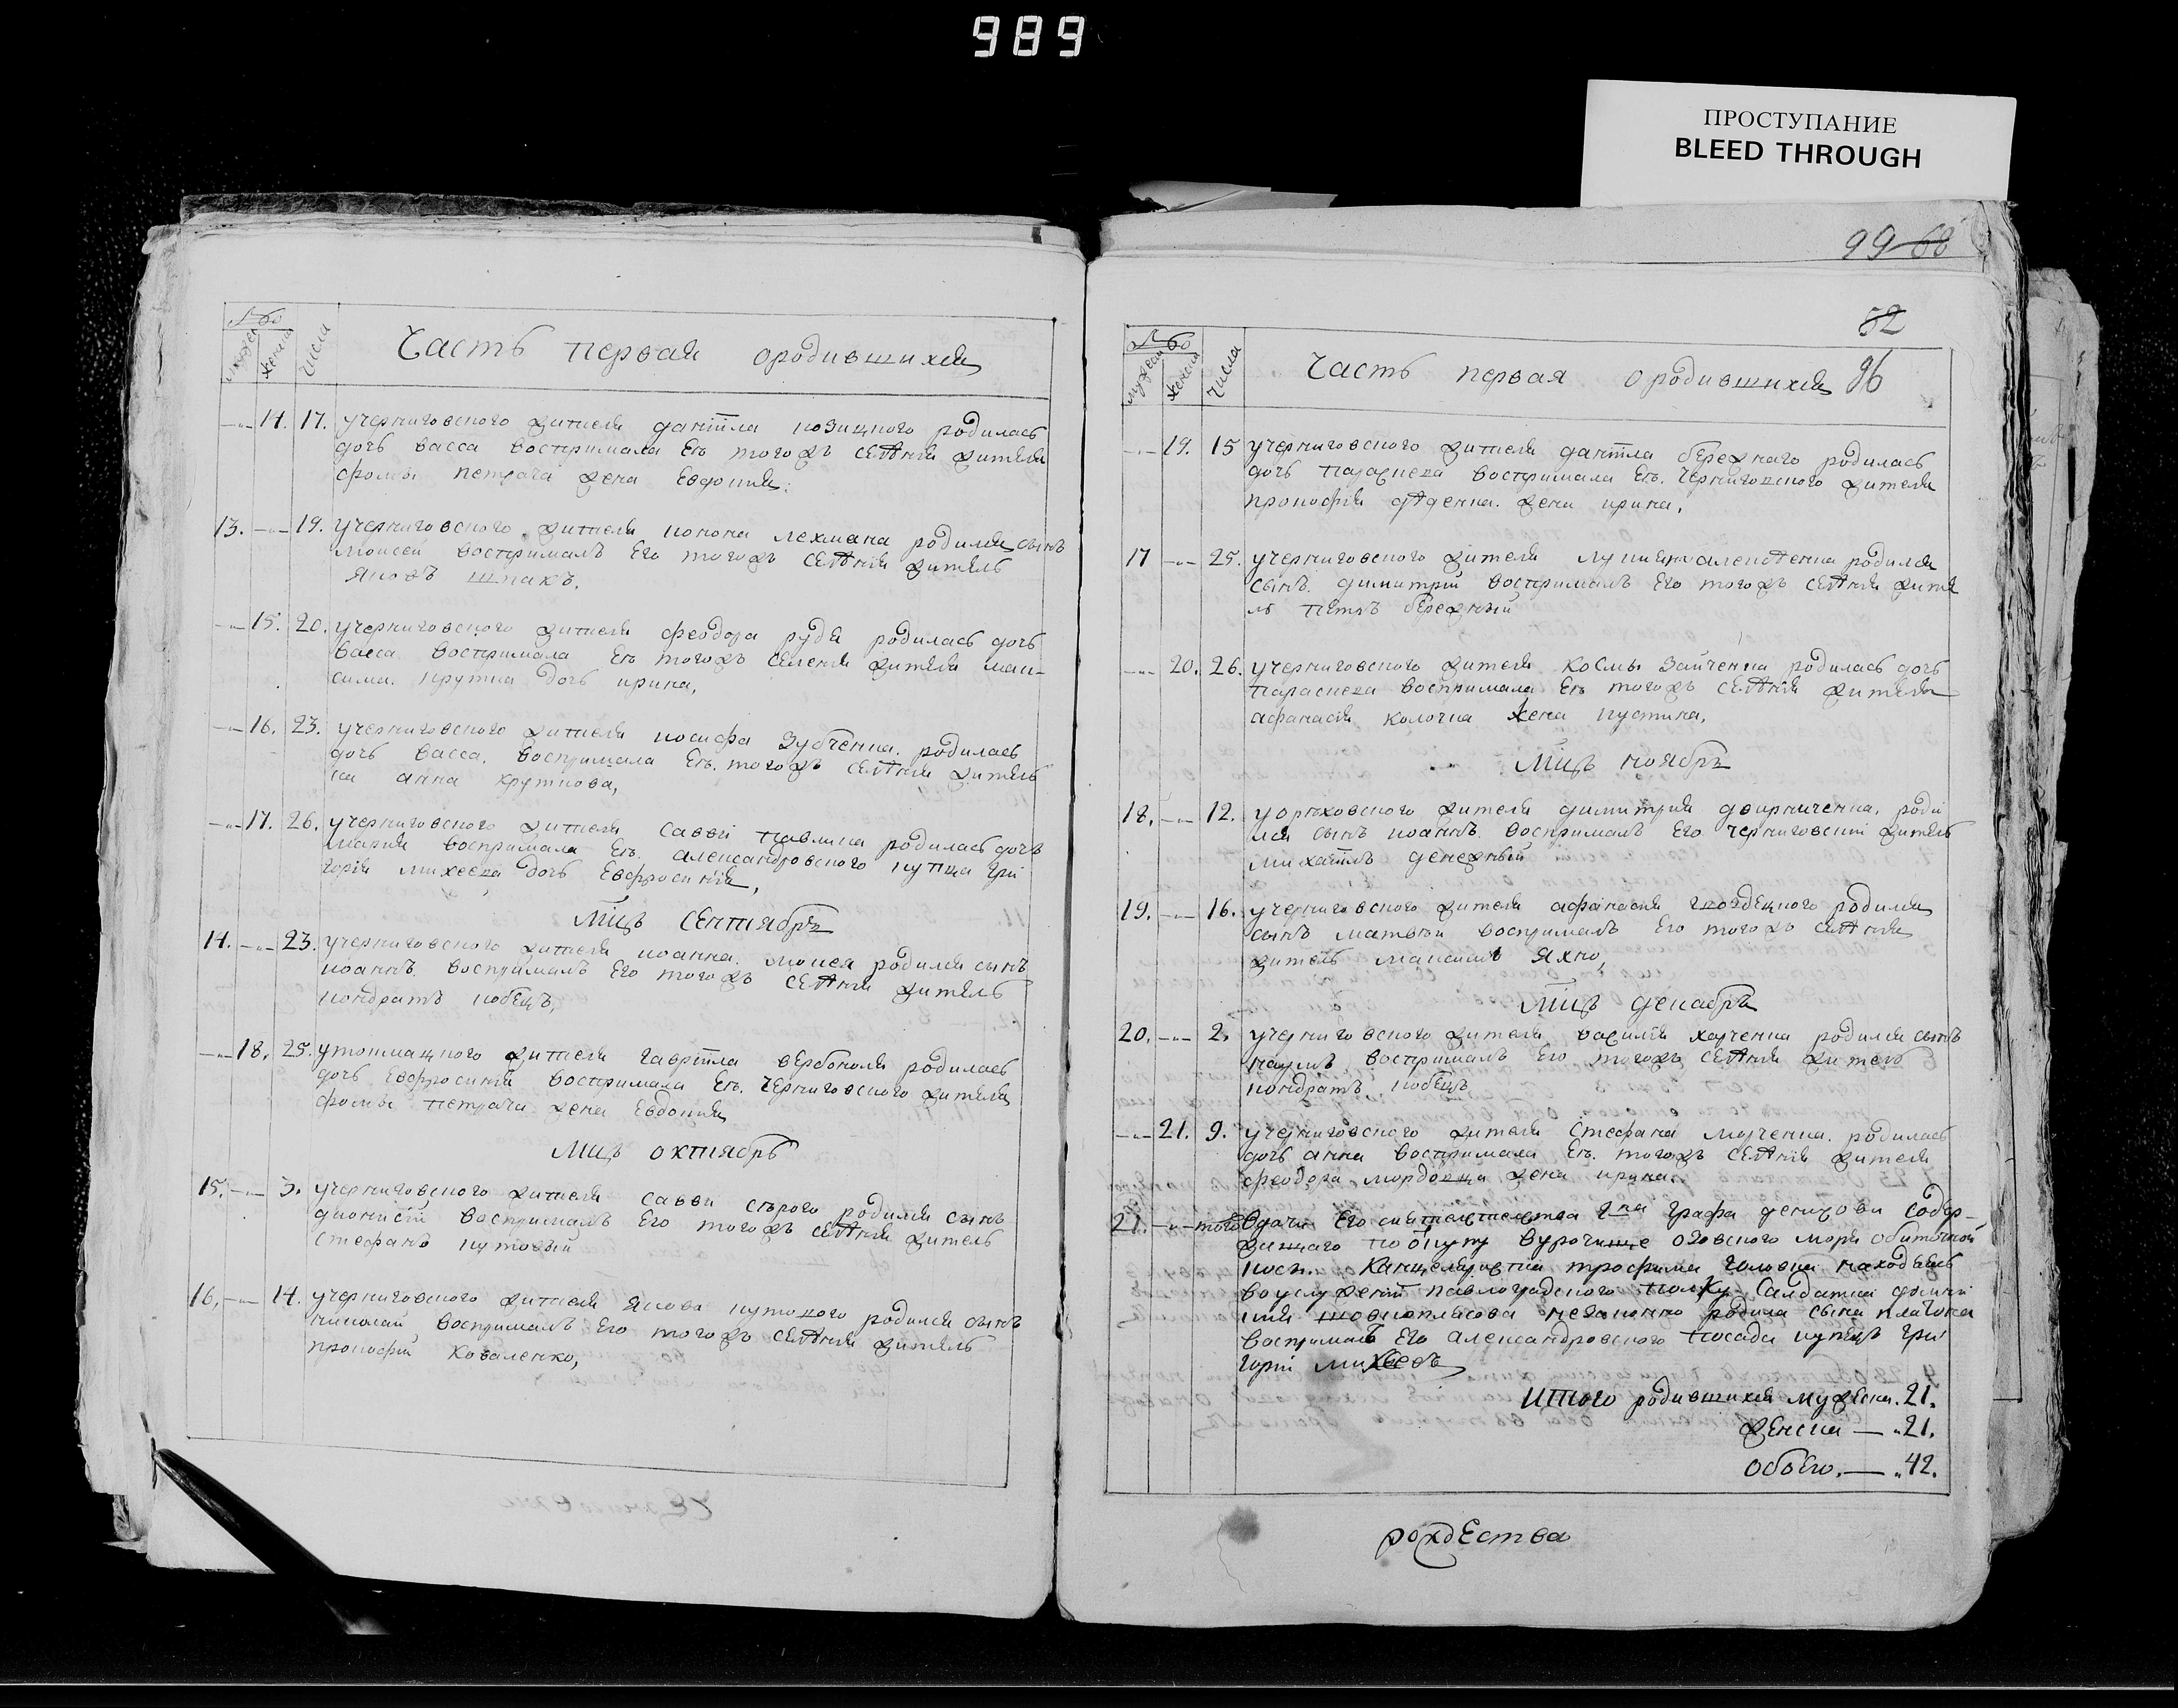 989
ПРОСТУПАНИЕ
BLEED THROUGH
99 68
№
мужеск
женска
числа
Часть первая ородившихся
14. 17. учерниговского жителя даніила позицного родилась
дочь васса воспримала Ея тогожъ селенія жителя
фомы петрача жена Евдокия.
13. 19. учерниговского жителя конона лехмана родился сынъ
моисей воспрималъ Его тогожъ селенія житель
яковъ шпакъ.
15. 20. учерниговского жителя феодора рудя родилась дочь
васса воспримала Ея тогожъ селенія жителя мак-
сима. крутка дочь ирина,
16. 23. учерниговского жителя иосифа Зубченка. родилась
дочь васса. воспримала Ея. тогожъ селенія житель
ка анна круткова,
17. 26. учерниговского жителя саввы павлика родилась дочь
марія воспримала Ея. александровского купца гри
горія михеева дочь Евфросинія,
Мцъ сентябрь
14. 23. учерниговского жителя иоанна. моисея родился сынъ
иоаннъ. воспрималъ Его тогожъ селенія житель
кондратъ кобецъ,
18. 25. утокмацкого жителя гавріила вербоноля родилась
дочь Евфросинія воспримала Ея. Черниговского жителя
фомы петрача жена Евдокия
Мцъ октябрь
15. 3. учерниговского жителя саввы сѣрого родился сынъ
дионисій воспрималъ Его тогожъ селенія житель
стефанъ кутовый
16. 14. учерниговского жителя якова кутового родился сынъ
николай воспрималъ Его тогожъ селенія житель
прокофій коваленко,
52
№
мужеск
женска
числа
Часть первая ородившихся 96
19. 15 учерниговского жителя даніила бережнаго родилась
дочь параскева воспримала Ея. Черниговского жителя
прокофія дѣденка. жена ирина,
17 25. учерниговского жителя родился
сынъ. димитрій воспрималъ Его тогожъ селенія жите
ль петръ бережный
20. 26. учерниговского жителя космы зайченка родилась дочь
параскева воспримала Ея тогожъ селенія жителя
афанасія колочка жена иустина,
Мцъ ноябрь
18. 12. уорѣховского жителя димитрія дворниченка, роди
лся сынъ иоаннъ. воспрималъ Его черниговскій житель
михаилъ денежный
19. 16. учерниговского жителя афанасія гвоздецкого родился
сынъ матвѣй воспрималъ Его тогожъ селенія
житель максимъ яхно,
Мцъ декабрь
20. 2. учерниговского жителя василія харченка родился сынъ
наумъ воспрималъ Его тогожъ селенія житель
кондратъ. кобецъ
21. 9. учерниговского жителя стефана марченка. родилась
дочь анна воспримала Ея. тогожъ селенія жителя
феодора мордовца жена ирина.
21. того Вдачи Его сиятельства Гна графа денисова содер-
жащаго по откупу вурочище озовского моря обиточной
косы. Канцеляристки трофима головки находясь
воуслуженіи павлоградского полку салдатка
незаконно родила сына платона
воспрималъ Его александровского посада купецъ гри
горій михеевъ
Итого родившихся мужеска. 21.
женска — 21.
обоего. — 42.
рождества